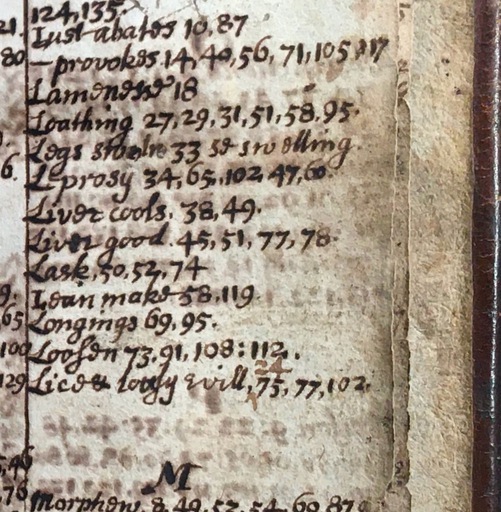 21. 124, 135,
Lust abates 10, 87
80 – provokes 14, 40, 56, 71, 105, 117
Lameness 18
Loathing 27, 29, 31, 51, 58, 95.
Legs 33 se swelling.
6. Leprosy 34, 65, 102, 47, 60
Liver cools. 38, 49.
Liver good. 45, 51, 77, 78.
Lask, 50, 52, 74
9. Lean make 58, 119.
65 Longings 69, 95.
100 Loosen 73, 91, 108: 112.
24
129 Lice & lousy evill, 75, 77, 102.
M
76 Morphew, 8, 49, 52, 54, 69, 87